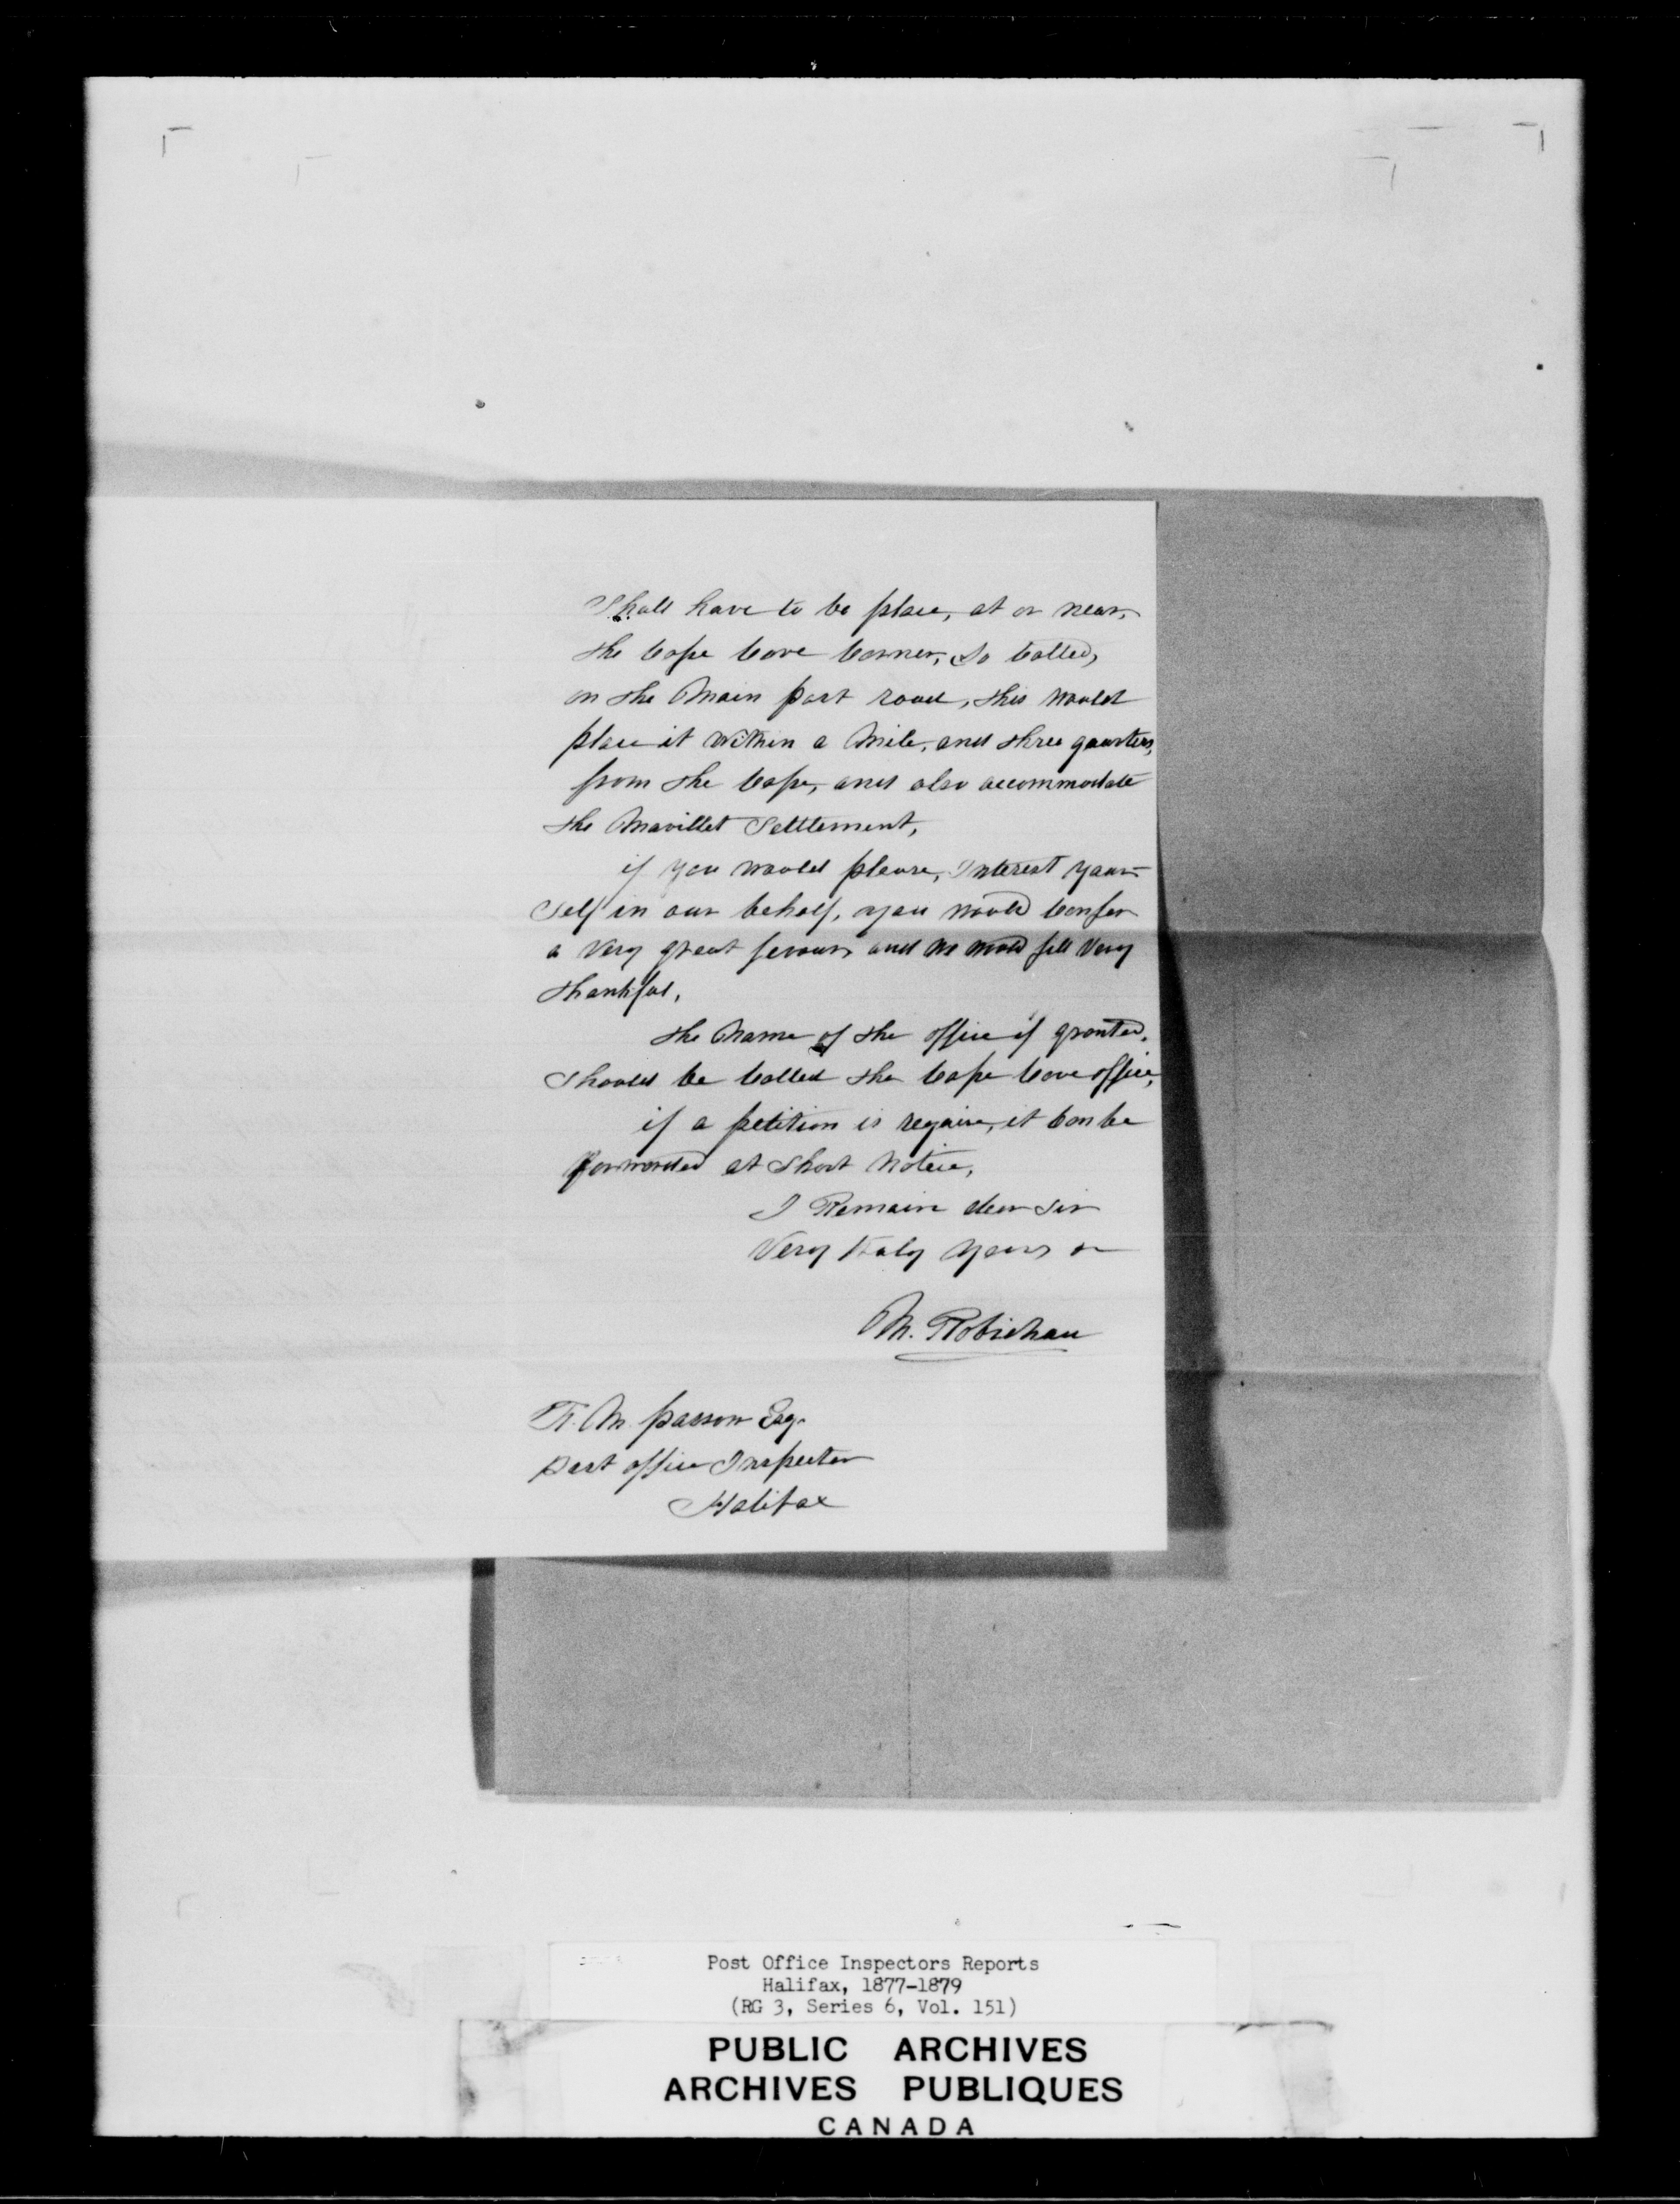 Shall have to be place, at or near,
the Cape Cove Corner, So Called,
on the Main post road, this would
place it within a Mile, and three quarters,
from the Cape, and also accommodate
the Mavillet Settlement,
if you would please, Interest your
Self in our behalf, you would Confer
a Very great favour and we would fell Very
thankful,
the Name of the office if granted,
should be Called the Cape Cove office,
if a petition is require, it Can be
forwarded at Short Notice,
I Remain dear Sir
Very truly yours
M. Robichau
M. Passow Esq.
post office Inspector
Halifax
Post Office Inspectors Reports
Halifax, 1877-1879
(RG 3, Series 6, Vol. 151)
PUBLIC ARCHIVES
ARCHIVES PUBLIQUES
CANADA